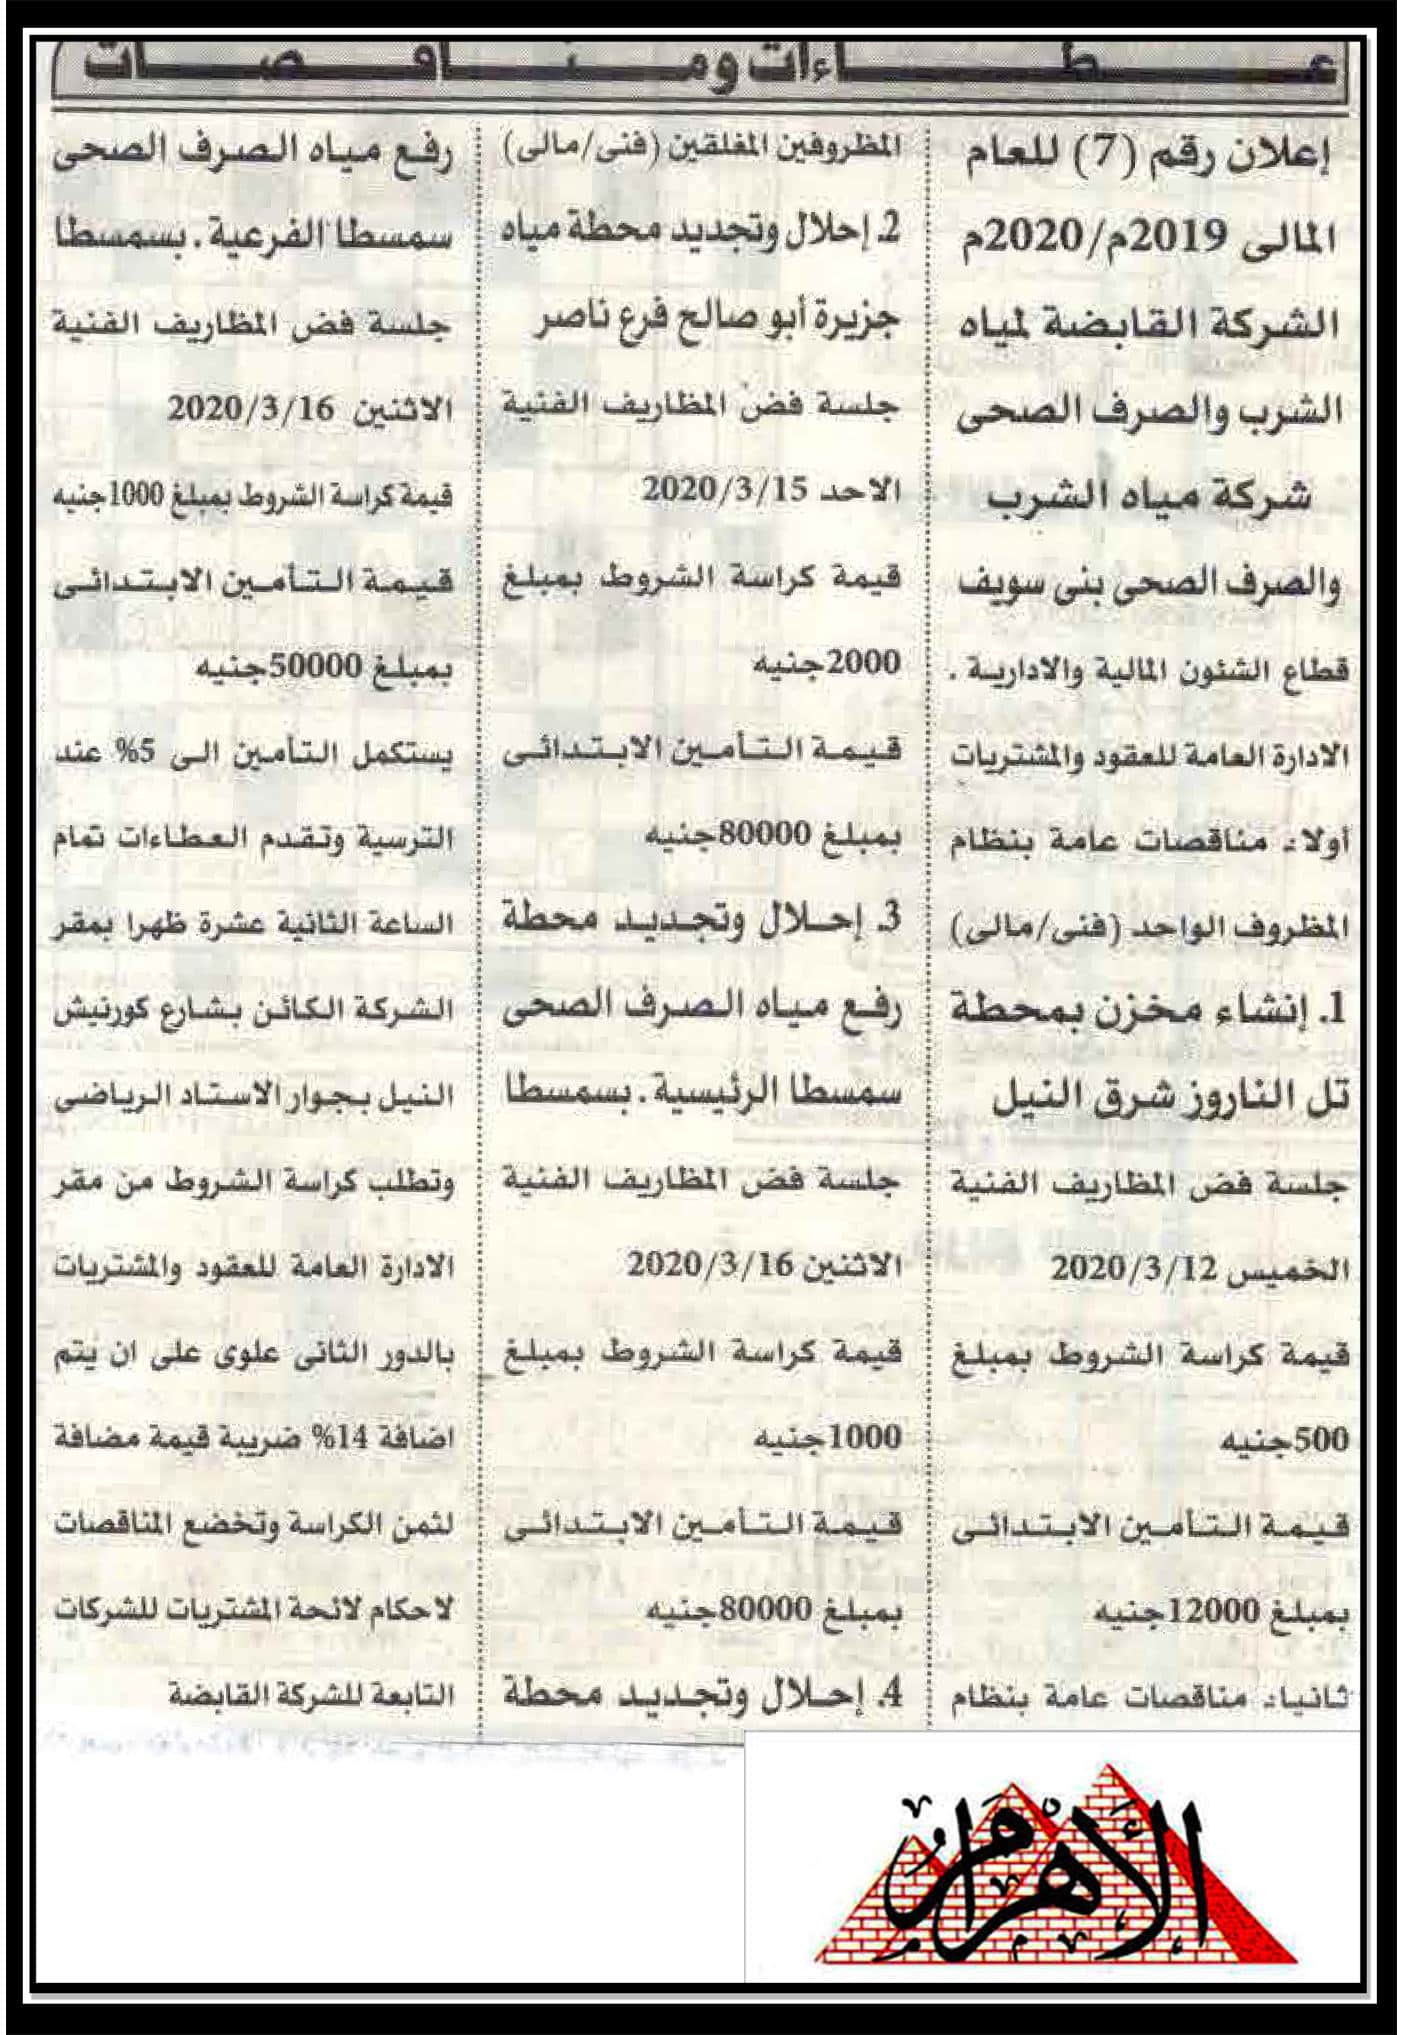 عطاءات ومناقصات
إعلان رقم (7) للعام
المالى 2019م/2020م
الشركة القابضة لمياه
الشرب والصرف الصحى
شركة مياه الشرب
والصرف الصحى بنى سويف
قطاع الشئون المالية والادارية .
الادارة العامة للعقود والمشتريات
أولا:. مناقصات عامة بنظام
المظروف الواحد (فنى/مالى)
1. إنشاء مخزن بمحطة
تل الناروز شرق النيل
جلسة فض المظاريف الفنية
الخميس 2020/3/12
قيمة كراسة الشروط بمبلغ
500جنيه
قيمة التأمين الابتدائى
بمبلغ 12000جنيه
ثانيا:. مناقصات عامة بنظام
المظروفين المغلقين (فنى/مالى)
2. إحلال وتجديد محطة مياه
جزيرة أبو صالح فرع ناصر
جلسة فض المظاريف الفنية
الاحد 2020/3/15
قيمة كراسة الشروط بمبلغ
2000جنيه
قيمة التأمين الابتدائى
بمبلغ 80000جنيه
3. إحلال وتجديد محطة
رفع مياه الصرف الصحى
سمسطا الرئيسية . بسمسطا
جلسة فض المظاريف الفنية
الاثنين 2020/3/16
قيمة كراسة الشروط بمبلغ
1000جنيه
قيمة التأمين الابتدائى
بمبلغ 80000جنيه
4. إحلال وتجديد محطة
رفع مياه الصرف الصحى
سمسطا الفرعية . بسمسطا
جلسة فض المظاريف الفنية
الاثنين 2020/3/16
قيمة كراسة الشروط بمبلغ 1000جنيه
قيمة التأمين الابتدائى
بمبلغ 50000جنيه
يستكمل التأمين الى 5% عند
الترسية وتقدم العطاءات تمام
الساعة الثانية عشرة ظهرا بمقر
الشركة الكائن بشارع كورنيش
النيل بجوار الاستاد الرياضى
وتطلب كراسة الشروط من مقر
الادارة العامة للعقود والمشتريات
بالدور الثانى علوى على ان يتم
اضافة 14% ضريبة قيمة مضافة
لثمن الكراسة وتخضع المناقصات
لاحكام لائحة المشتريات للشركات
التابعة للشركة القابضة
الأهرام